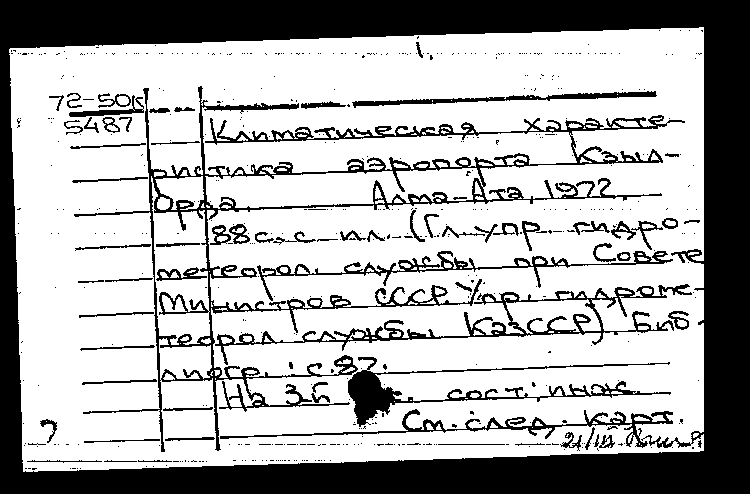 1.
72-50к
5487
Климатическая характе-
ристика аэропорта Кзыл-
Орда. Алма-Ата, 1972.
88с. с ил. (Гл. упр. гидро-
метеорол. службы при Совете
Министров СССР. Упр. гидроме-
теорол. службы КазССР). Биб-
лиогр.: с. 87.
На 3.й с. сост.: инж.
См. след. карт.
21/III